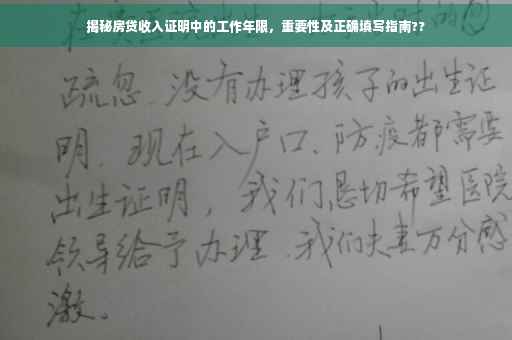 揭秘房贷收入证明中的工作年限，重要性及正确填写指南??
疏忽、没有办理孩子的出生证
明、现在入户口、防疫都需要
出生证明，我们恳切希望医院
领导给予办理、我们夫妻万分感
激。